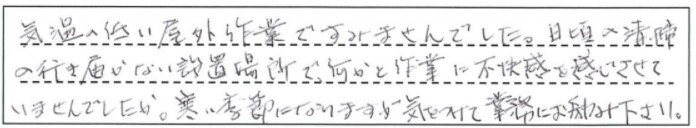 気温の低い屋外作業ですみませんでした。日頃の清掃
の行き届かない設置場所で、何かと作業に不快感を感じさせて
いませんでしたか。寒い季節になりますが気をつけて業務にお励み下さい。